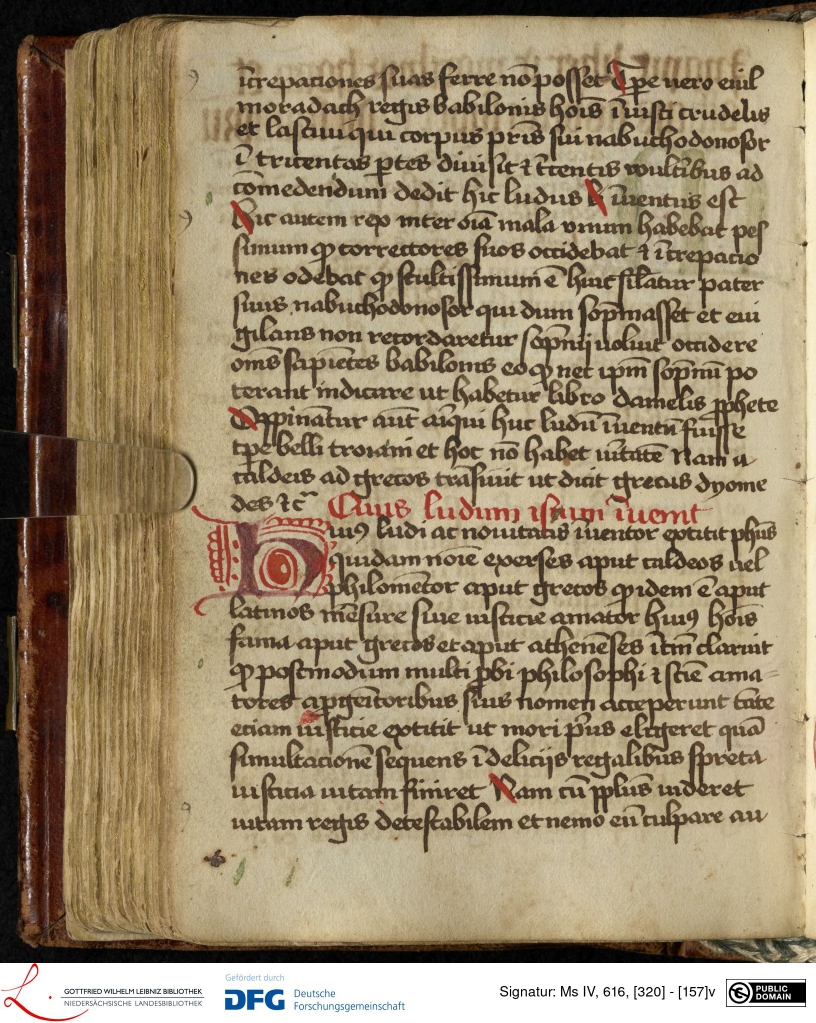 īcrepaciones suas ferre nō posset Tp̄e uero euil
moradach regis babilonis hoīs īiusti crudelis
et lasciui qui corpus pr̄is sui nabuchodonosor
ī tricentas ꝑtes diuisit ⁊ tͨcentis wultībus ad
cōmedendum dedit hic ludus īuentus est
Hic autem rex inter oīa mala vnum habebat pes
simum ꝙ correctores suos occidebat ⁊ īcrepacio
nes odebat ꝙ stultissimum ē huic sil̄atur pater
suus nabuchodonosor qui dum sop̄masset et eui
gilans non recordaretur sop̄nij uoluit occidere
om̄s sapiētes babilonis eo ꝙ nec ip̄m sop̄nū po
terant indicare ut habetur libro danielis ꝓphete
Oppinātur aūt aīqui huc ludū īuentū fuisse
tp̄e belli troiani et hoc nō habet uītatē Nam a
caldeis ad grecos trāsiuit ut dicit grecus dyome
des ⁊c̄ Cuius ludum istum īuenit
Huiꝰ ludi ac nouitatis īuentor extitit ph̄us
quidam noīe exerses aput caldeos uel
philometor aput grecos ꝙ idem ē aput
latinos mēsure siue iusticie amator huiꝰ hoīs
fama aput grecos et aput athenēses ītm̄ claruit
ꝙ postmodum multi ꝓbi philosophi ⁊ sciē ama
tores a ꝓgēitoribus suis nomen acceperunt tāte
eciam iusticie extitit ut mori pͥus eligeret quā
simultacionē sequens ī delicijs regalibus spreta
iusticia uitam finiret Nam cū ꝓplus uideret
uitam regis detestabilem et nemo eū culpare au
GOTTFRIED WILHELM LEIBNIZ BIBLIOTHEK
NIEDERSÄCHSISCHE LANDESBIBLIOTHEK
Gefördert durch
DFG Deutsche
Forschungsgemeinschaft
Signatur: Ms IV, 616, [320] - [157]v
PUBLIC
DOMAIN